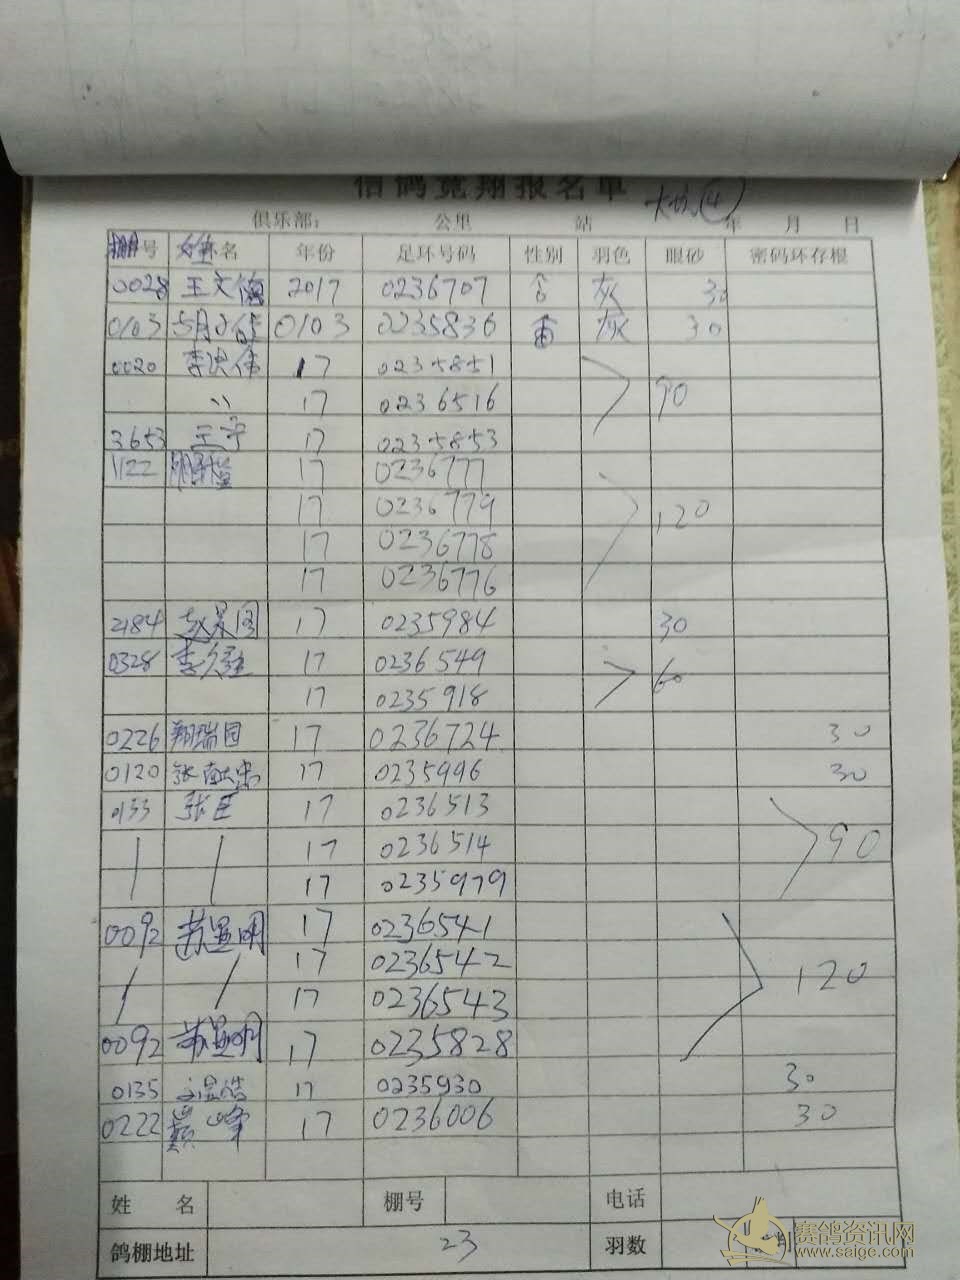 信鸽竞翔报名单
俱乐部： 公里 站 ④ 年 月 日
棚号 姓名 年份 足环号码 性别 羽色 眼砂 密码环存根
0028 王文德 2017 0236707 灰 30
0103 0103 0235836 灰 30
0020 李洪伟 17 0235851
〃 17 0236516 90
3653 王宇 17 0235853
1122 17 0236777
17 0236779 120
17 0236778
17 0236776
2184 17 0235984 30
0328 17 0236549 60
17 0235918
0226 翔瑞园 17 0236724 30
0120 张献忠 17 0235996 30
0133 张臣 17 0236513
17 0236514 90
17 0235979
0092 17 0236541
17 0236542 120
17 0236543
0092 17 0235828
0135 17 0235930 30
0222 峰 17 0236006 30
姓 名 棚号 电话
鸽棚地址 23 羽数
赛鸽资讯网
www.saige.com